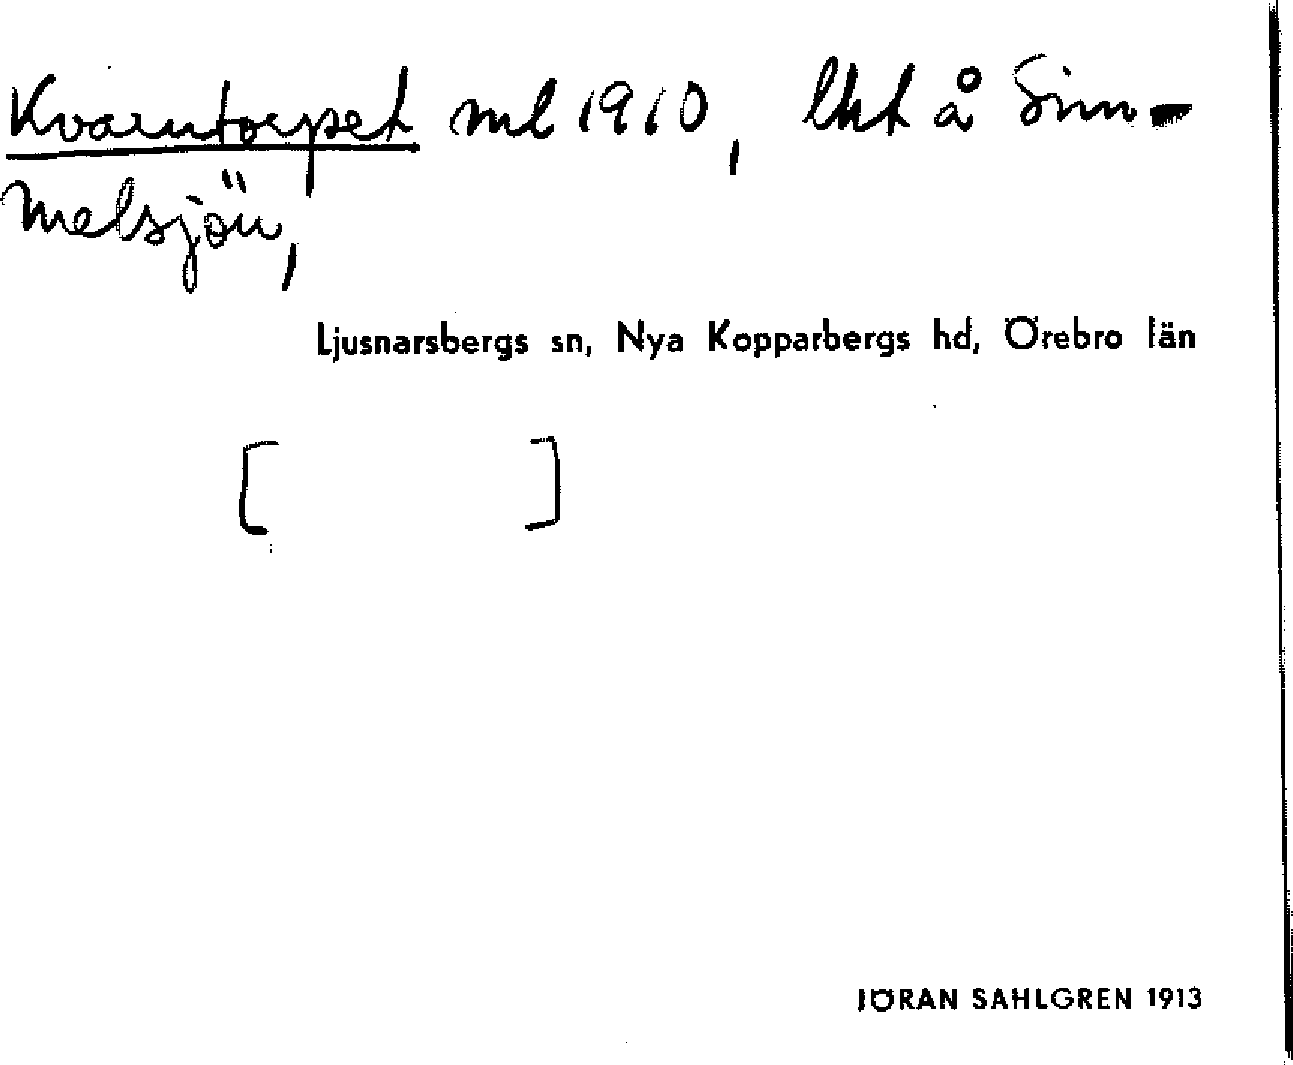 Kvarntorpet ml 1910, lht å Sim-
melsjön,
Ljusnarsbergs sn, Nya Kopparbergs hd, Örebro län
[ ]
JÖRAN SAHLGREN 1913